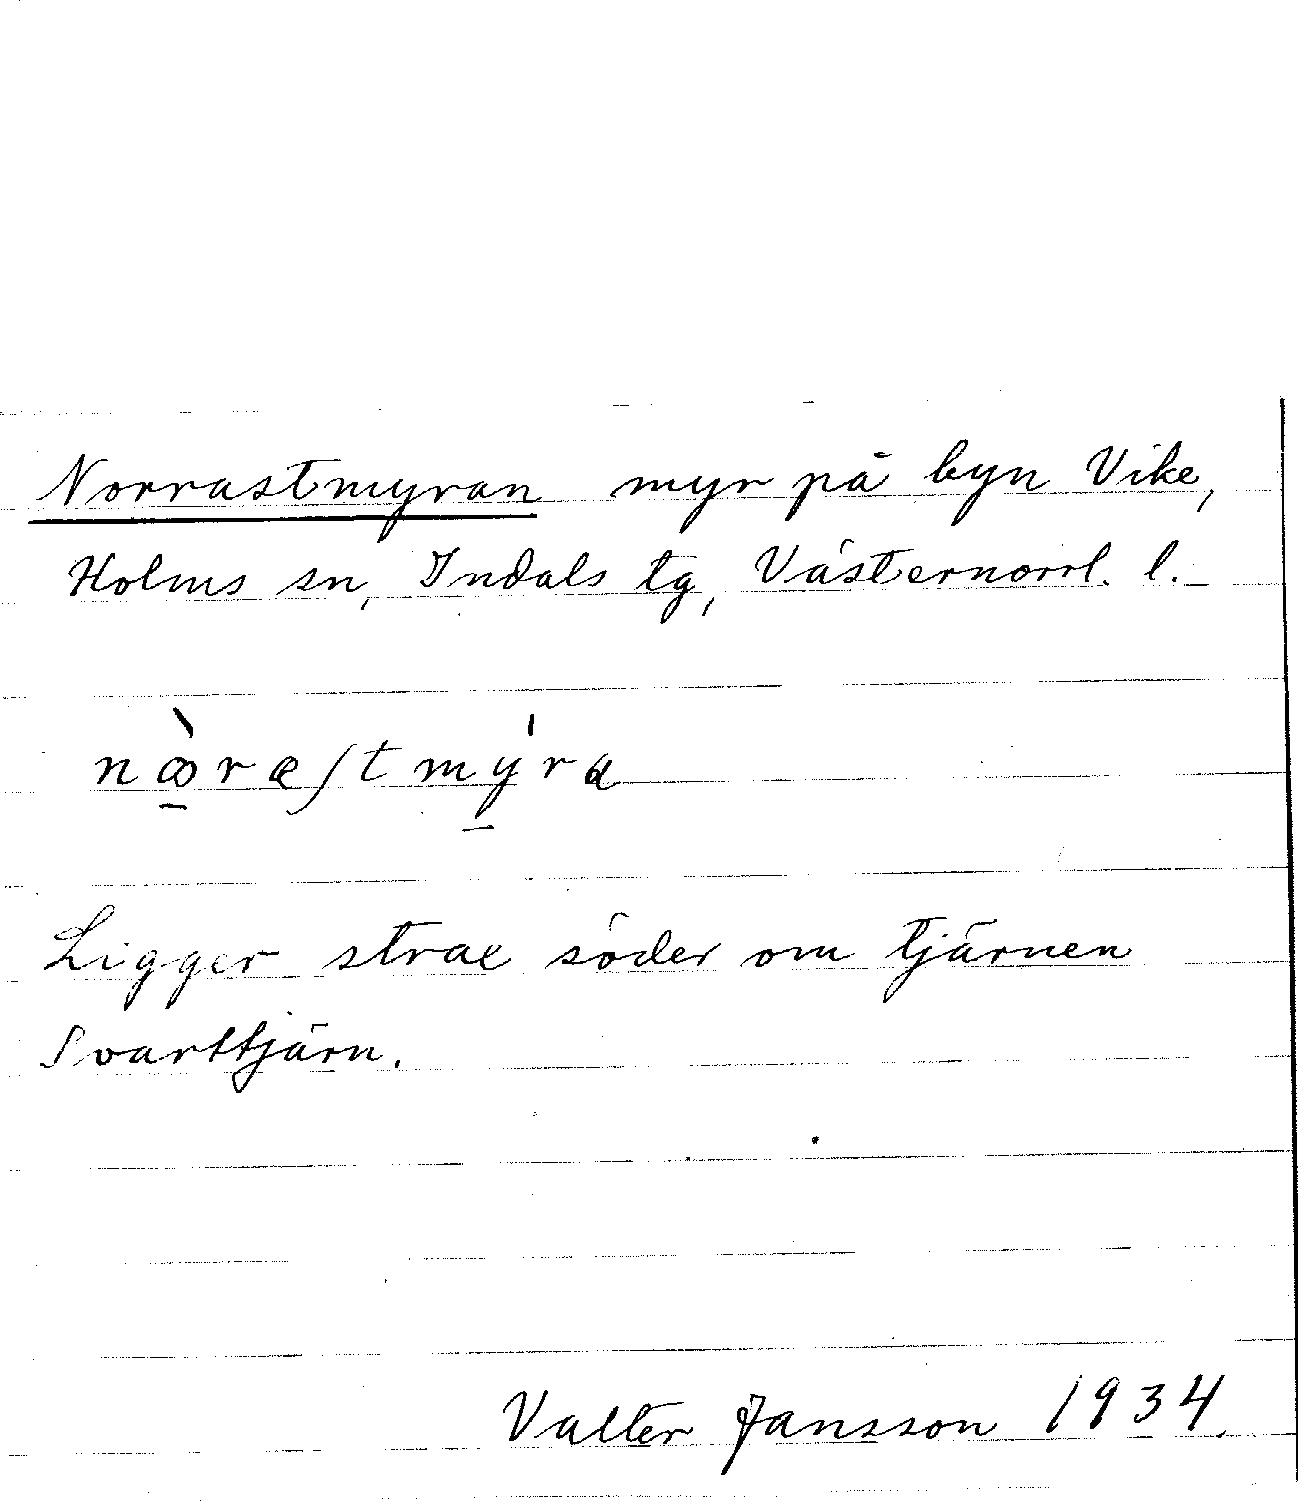 Norrastmyran myr på byn Vike,
Holms sn, Indals tg, Västernorrl. l.
nꝏ̀ræſtmýra
Ligger strax söder om tjärnen
Svarttjärn.
Valter Jansson 1934.